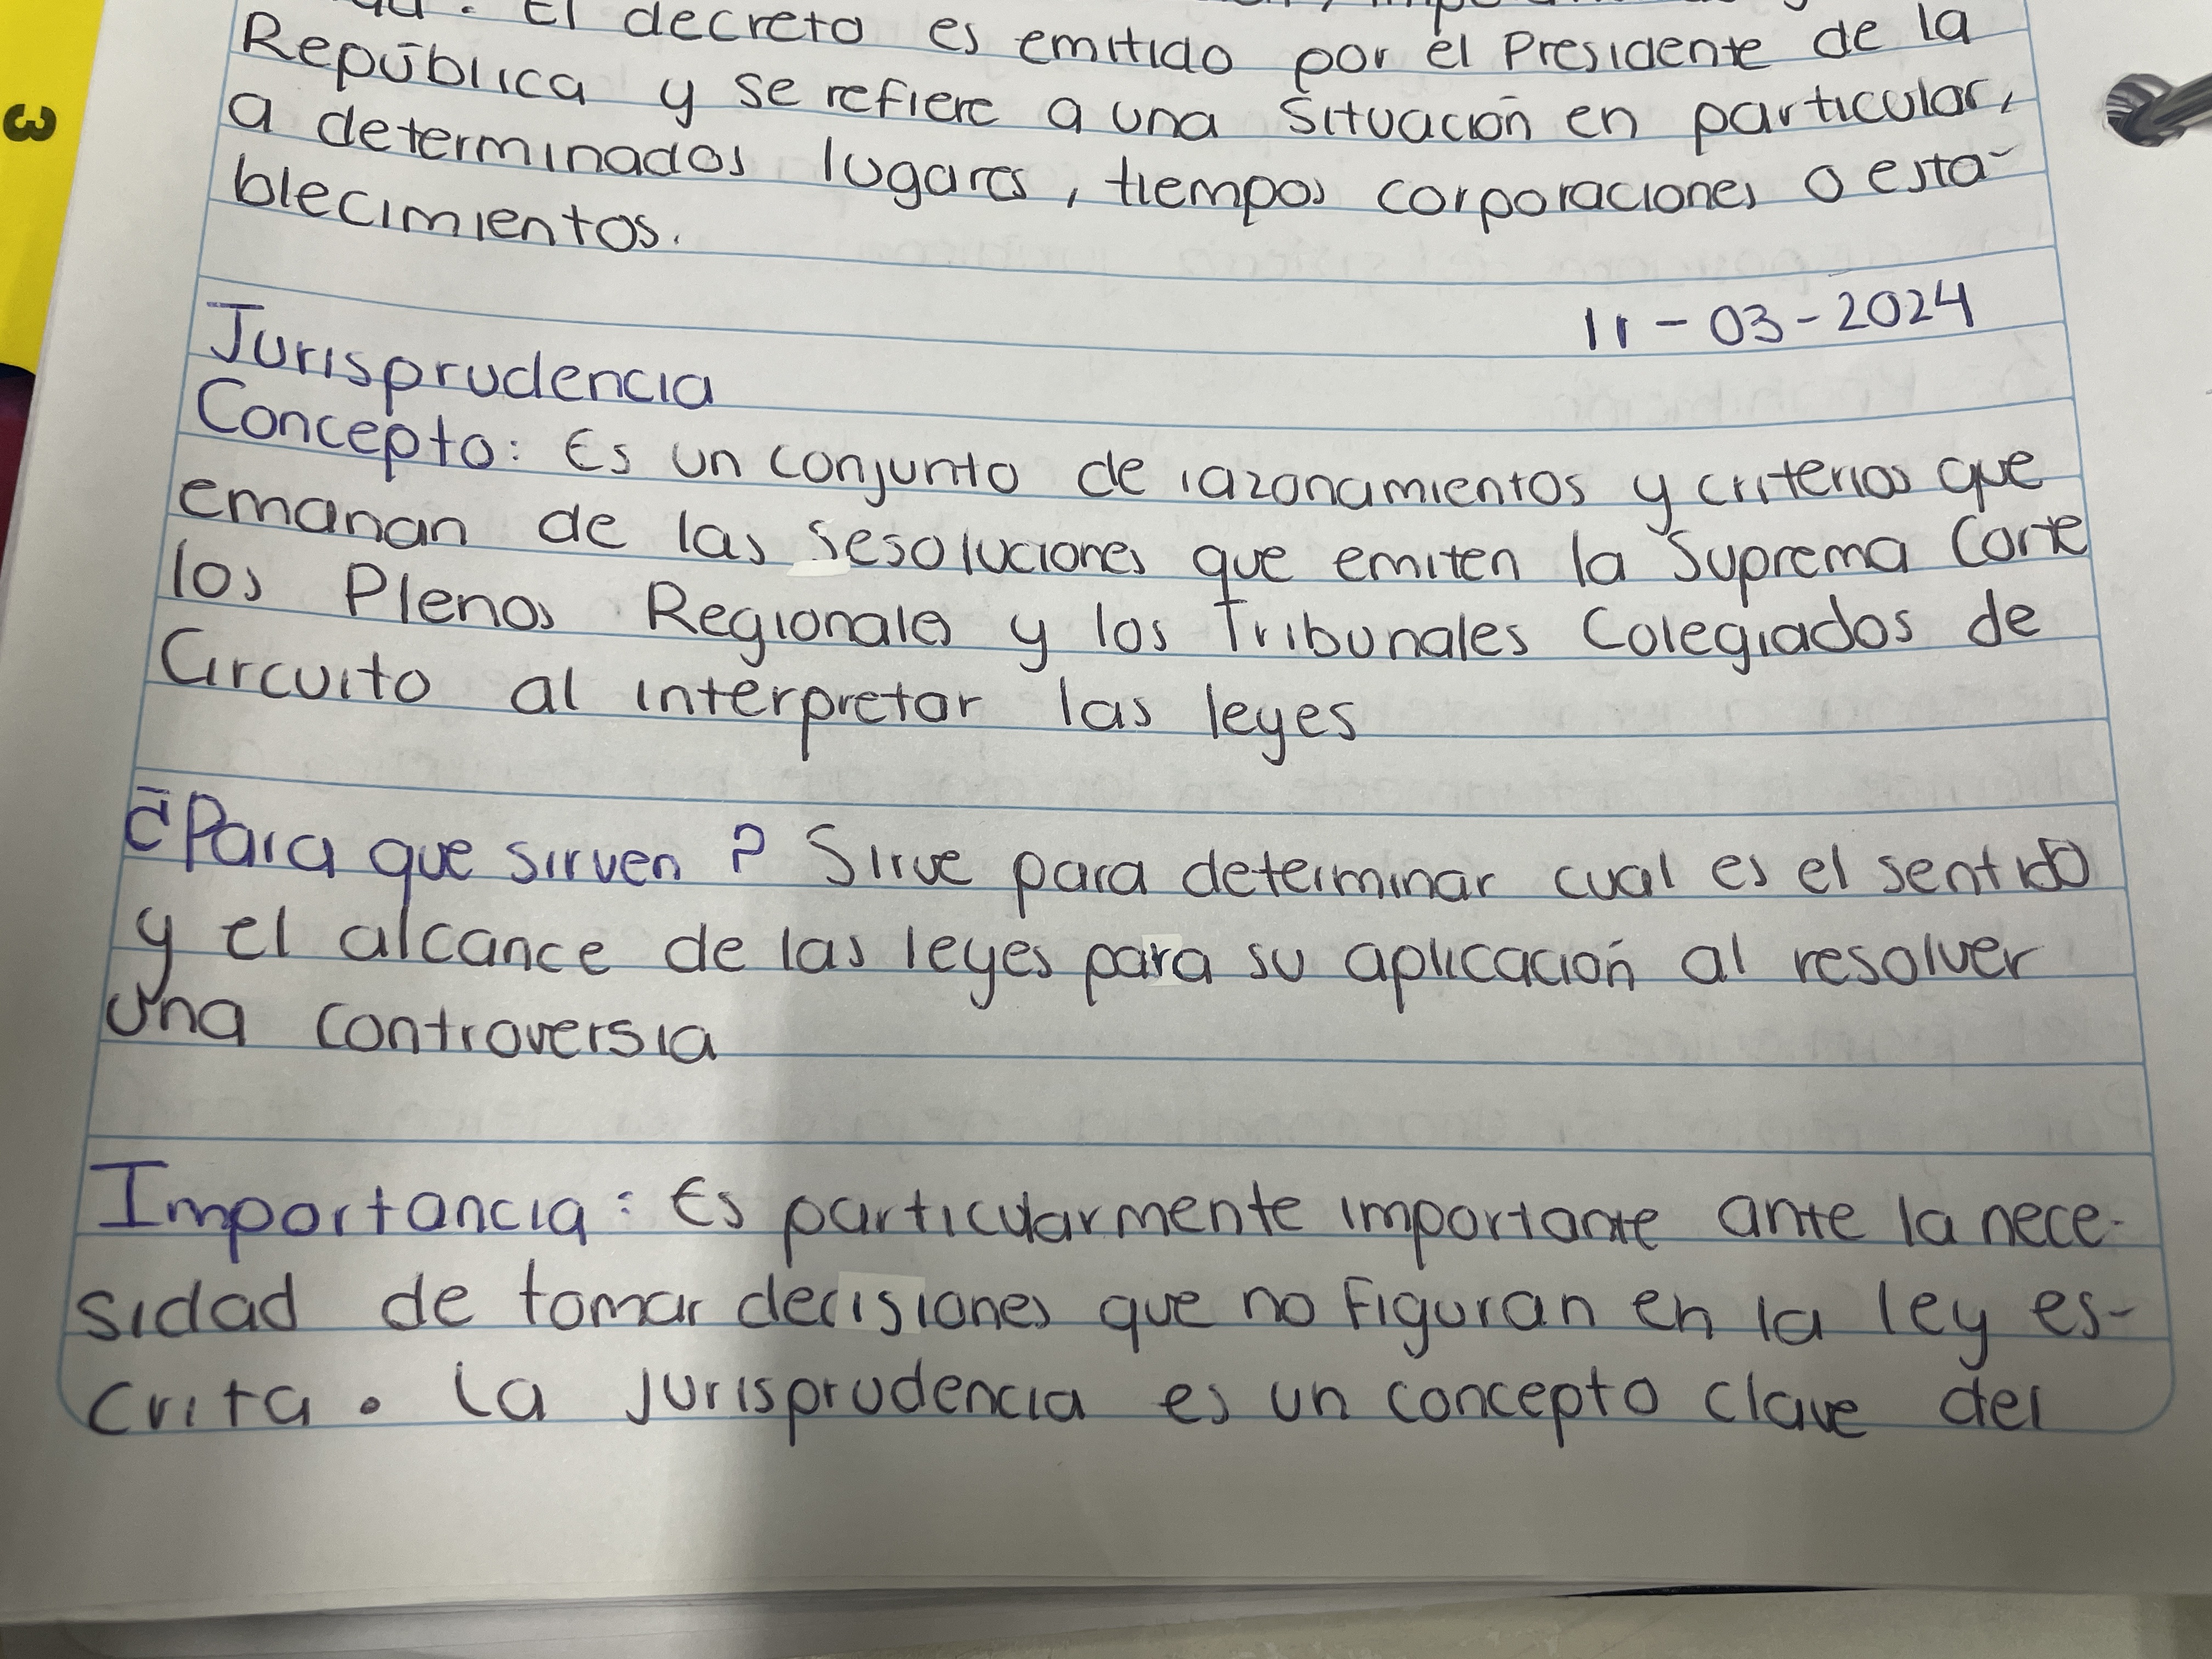 El decreto es emitido por el Presidente de la
República y se refiere a una situación en particular,
a determinados lugares, tiempos corporaciones o esta-
blecimientos.
11-03-2024
Jurisprudencia
Concepto: Es un conjunto de razonamientos y criterios que
emanan de las sesoluciones que emiten la Suprema Corte
los Plenos Regionales y los Tribunales Colegiados de
Circuito al interpretar las leyes
¿Para que sirven? Sirve para determinar cual es el sentido
y el alcance de las leyes para su aplicación al resolver
una controversia
Importancia: Es particularmente importante ante la nece-
sidad de tomar decisiones que no figuran en la ley es-
crita. La jurisprudencia es un concepto clave del
3